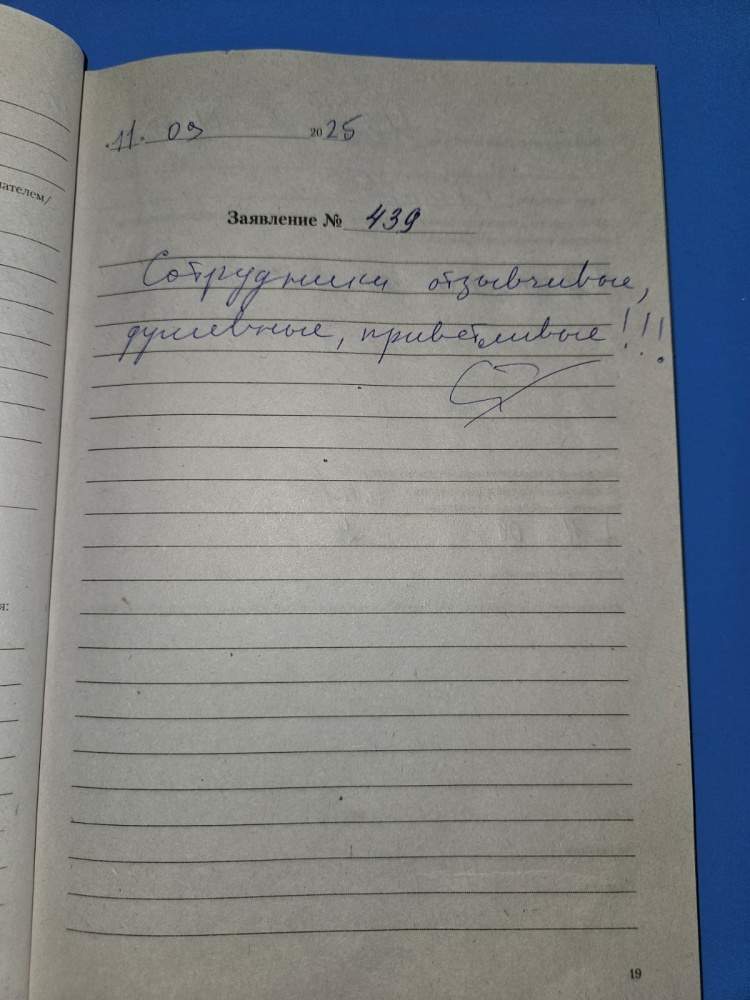 пателем/
я:
«11» 09 2025
Заявление № 439
Сотрудники отзывчивые,
душевные, приветливые!!!
19